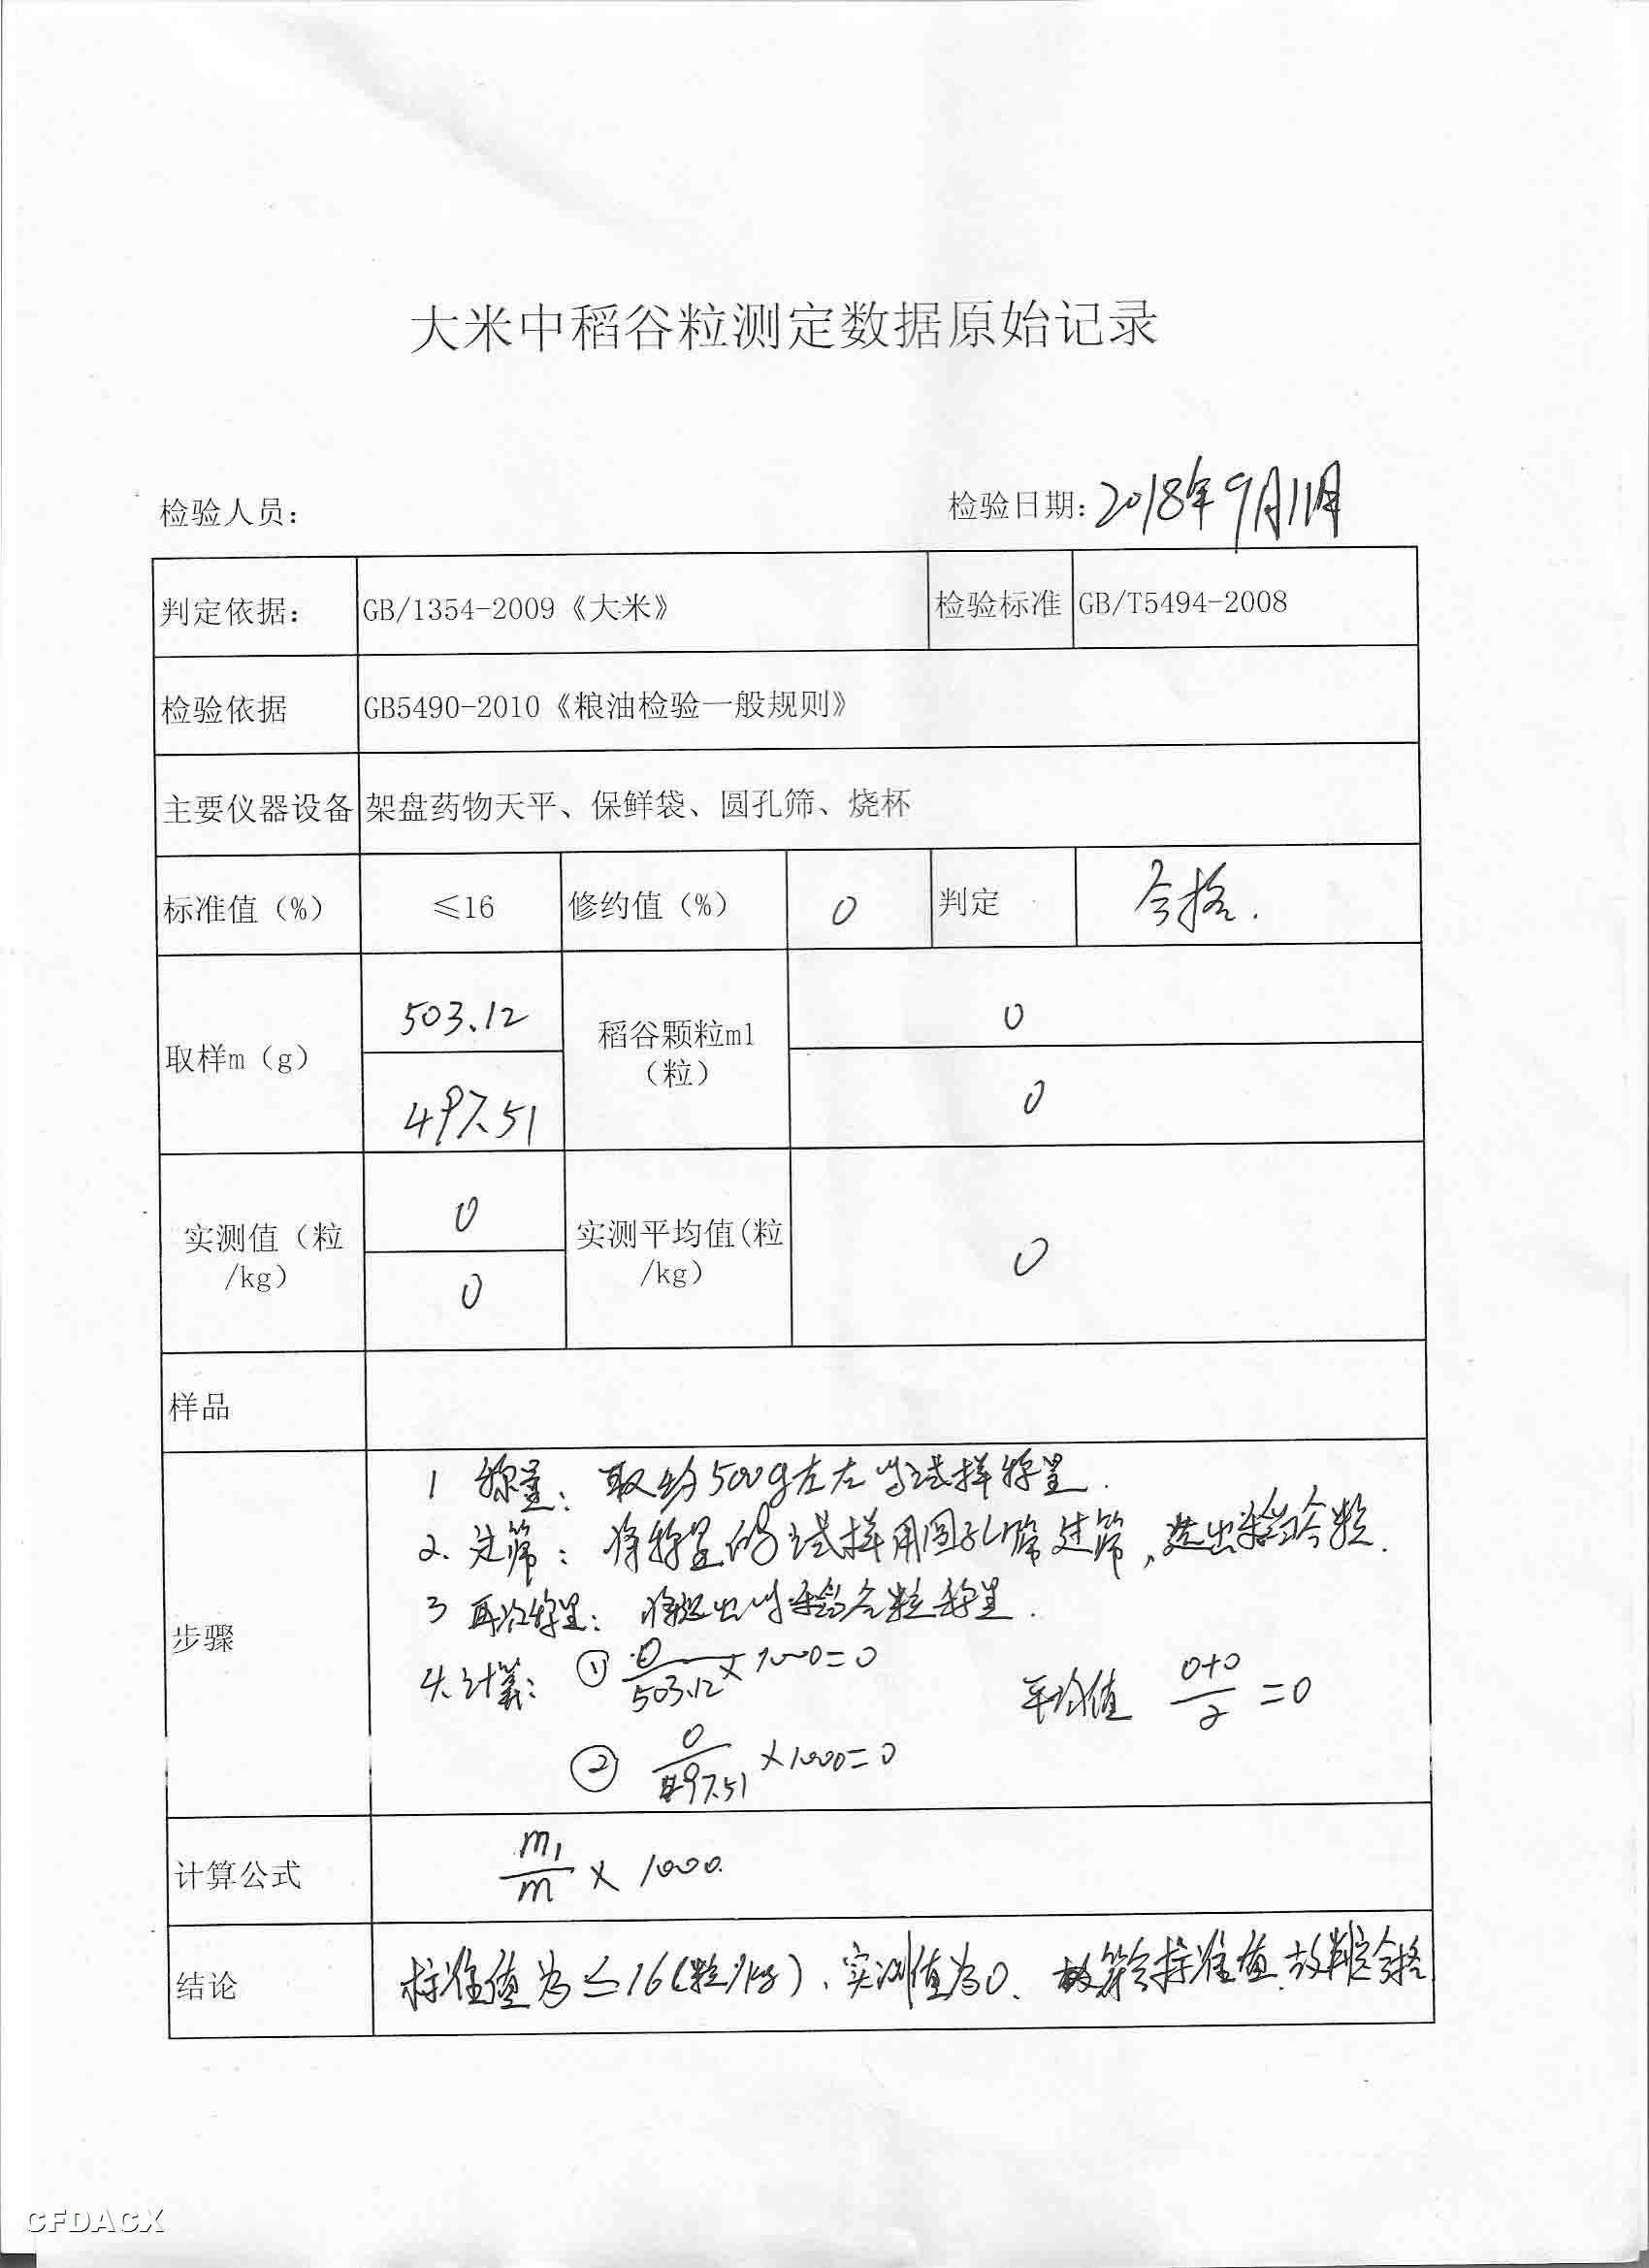 大米中稻谷粒测定数据原始记录
检验人员： 检验日期：2018年9月11日
判定依据： GB/1354-2009《大米》 检验标准 GB/T5494-2008
检验依据 GB5490-2010《粮油检验一般规则》
主要仪器设备 架盘药物天平、保鲜袋、圆孔筛、烧杯
标准值（%） ≤16 修约值（%） 0 判定 合格.
取样m（g） 503.12 稻谷颗粒m1 0
（粒）
497.51 0
实测值（粒 0 实测平均值(粒 0
/kg） /kg）
0
样品
步骤
1 称量：取约500g左右的试样称量.
2. 过筛：将称量的试样用圆孔筛过筛，选出稻谷粒.
3 再次称量：将选出的稻谷粒称量.
4. 计算：① 0/503.12×1000=0 平均值 0+0/2=0
② 0/497.51×1000=0
计算公式 m1/m × 1000.
结论 标准值为≤16(粒/kg)、实测值为0. 故符合标准值.故判定合格
CFDACX